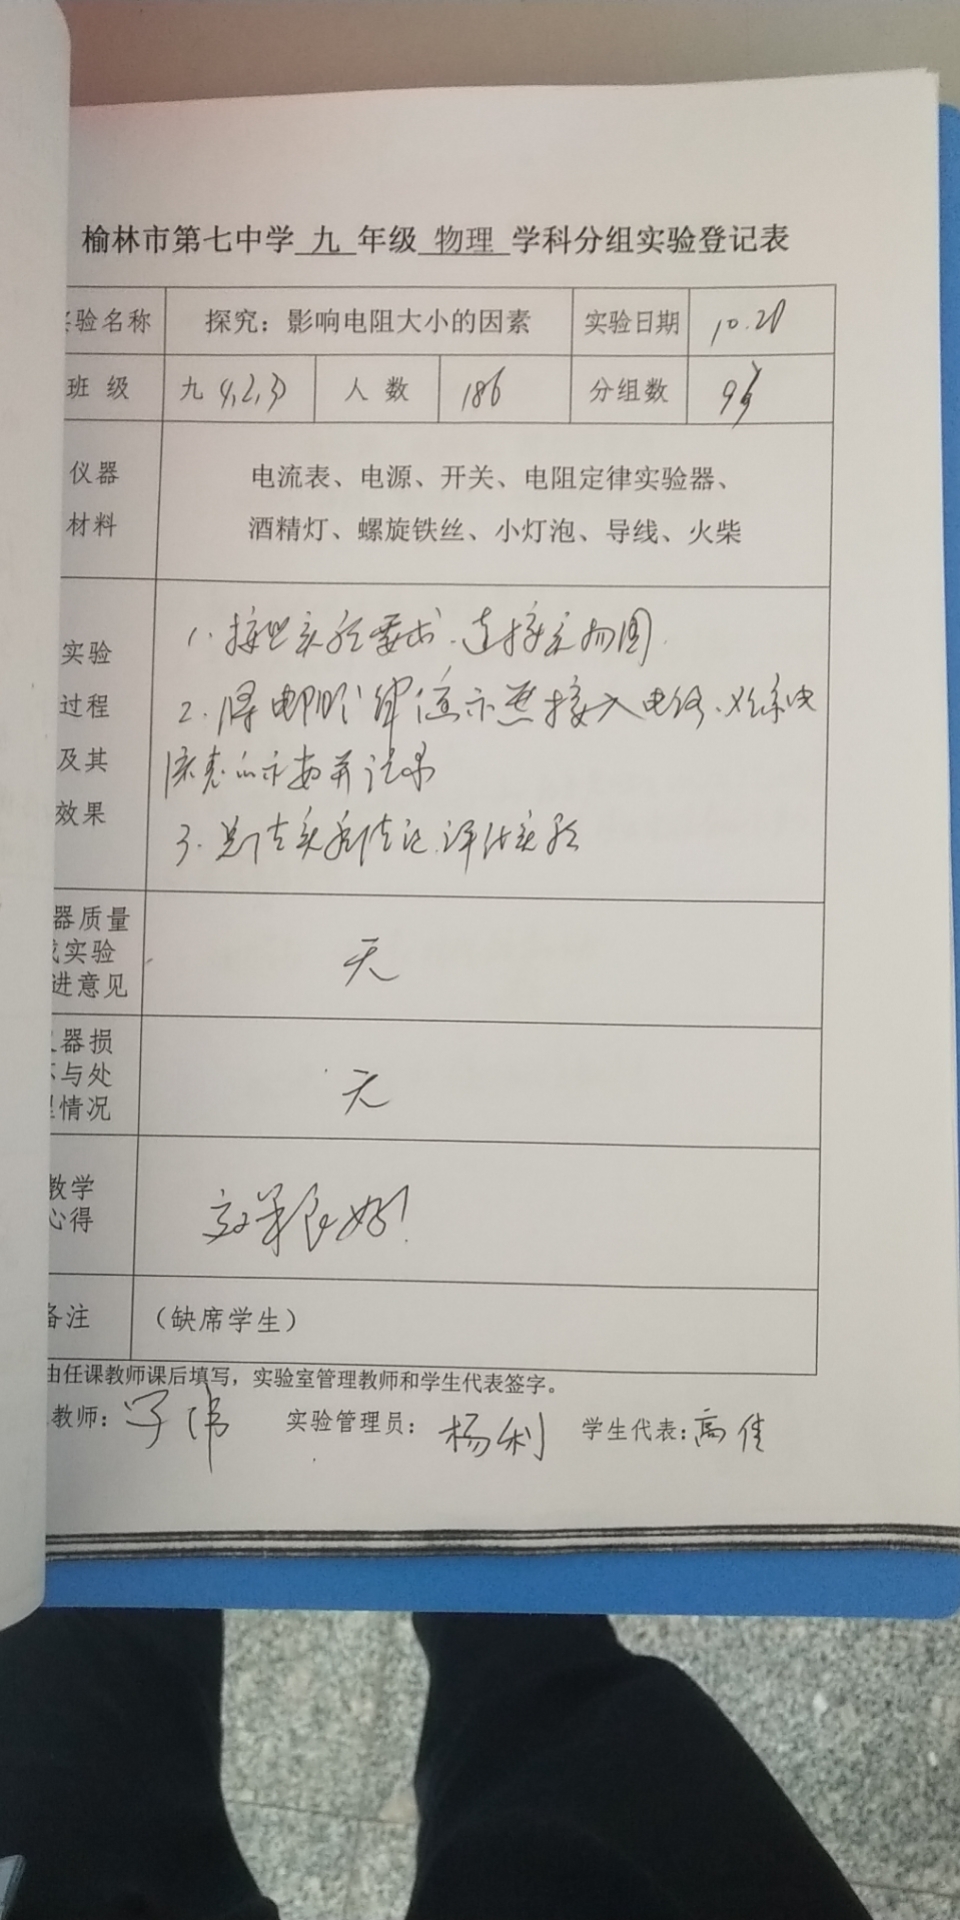 榆林市第七中学 九 年级 物理 学科分组实验登记表
验名称 探究：影响电阻大小的因素 实验日期 10.28
班 级 九 人 数 186 分组数
仪器 电流表、电源、开关、电阻定律实验器、
材料 酒精灯、螺旋铁丝、小灯泡、导线、火柴
实验
过程
及其
效果
1. 按照实验要求.连接实物图.
2. 将电阻定律演示器接入电路.
表的示数并记录
3. 总结实验 评估实验
器质量
实验
进意见
无
器损
与处
情况
无
教学
心得
效果良好!
备注 （缺席学生）
由任课教师课后填写，实验室管理教师和学生代表签字。
教师： 实验管理员：杨利 学生代表：高佳